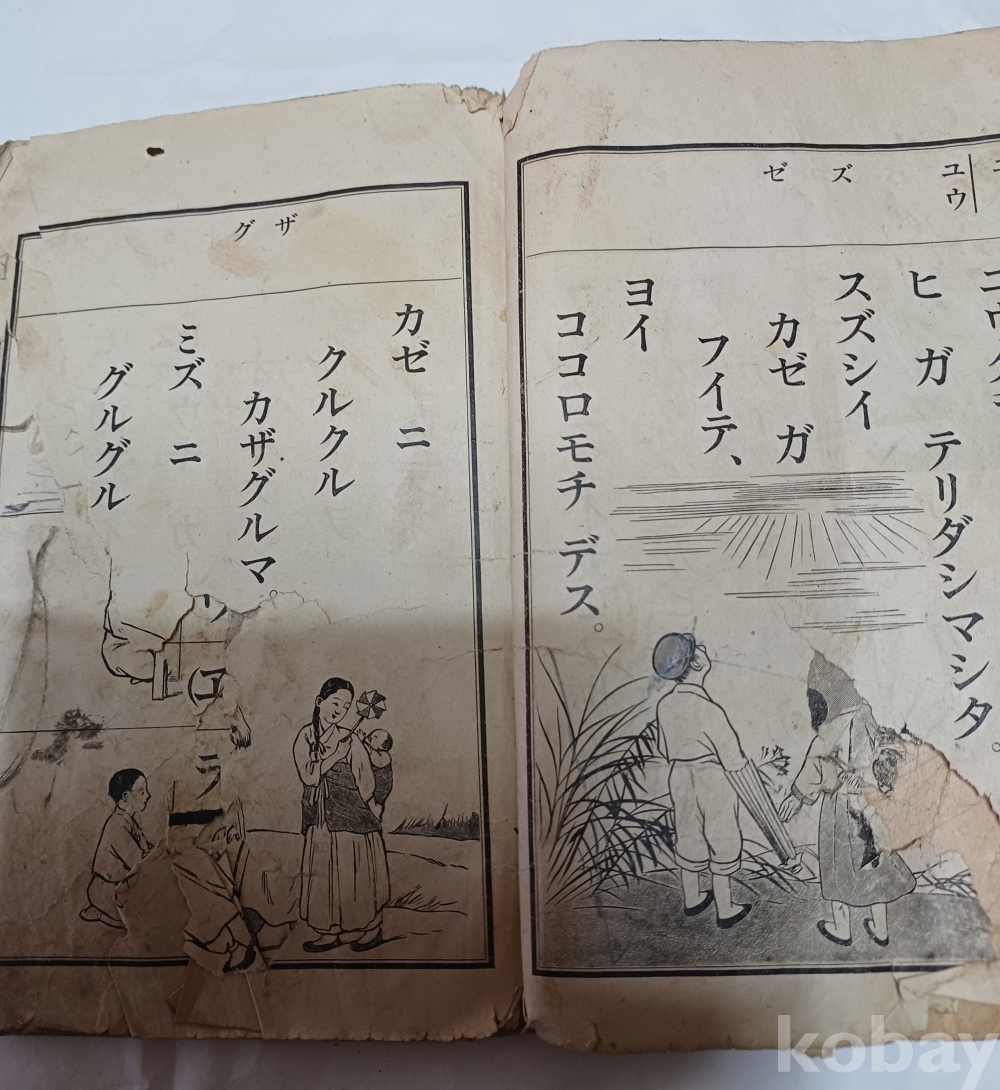 ユウ
ズ
ゼ
ヒ ガ テリダシマシタ。
スズシイ
カゼ ガ
フイテ、
ヨイ
ココロモチ デス。
ザ
グ
カゼ ニ
クルクル
カザグルマ。
ミズ ニ
グルグル
kobay